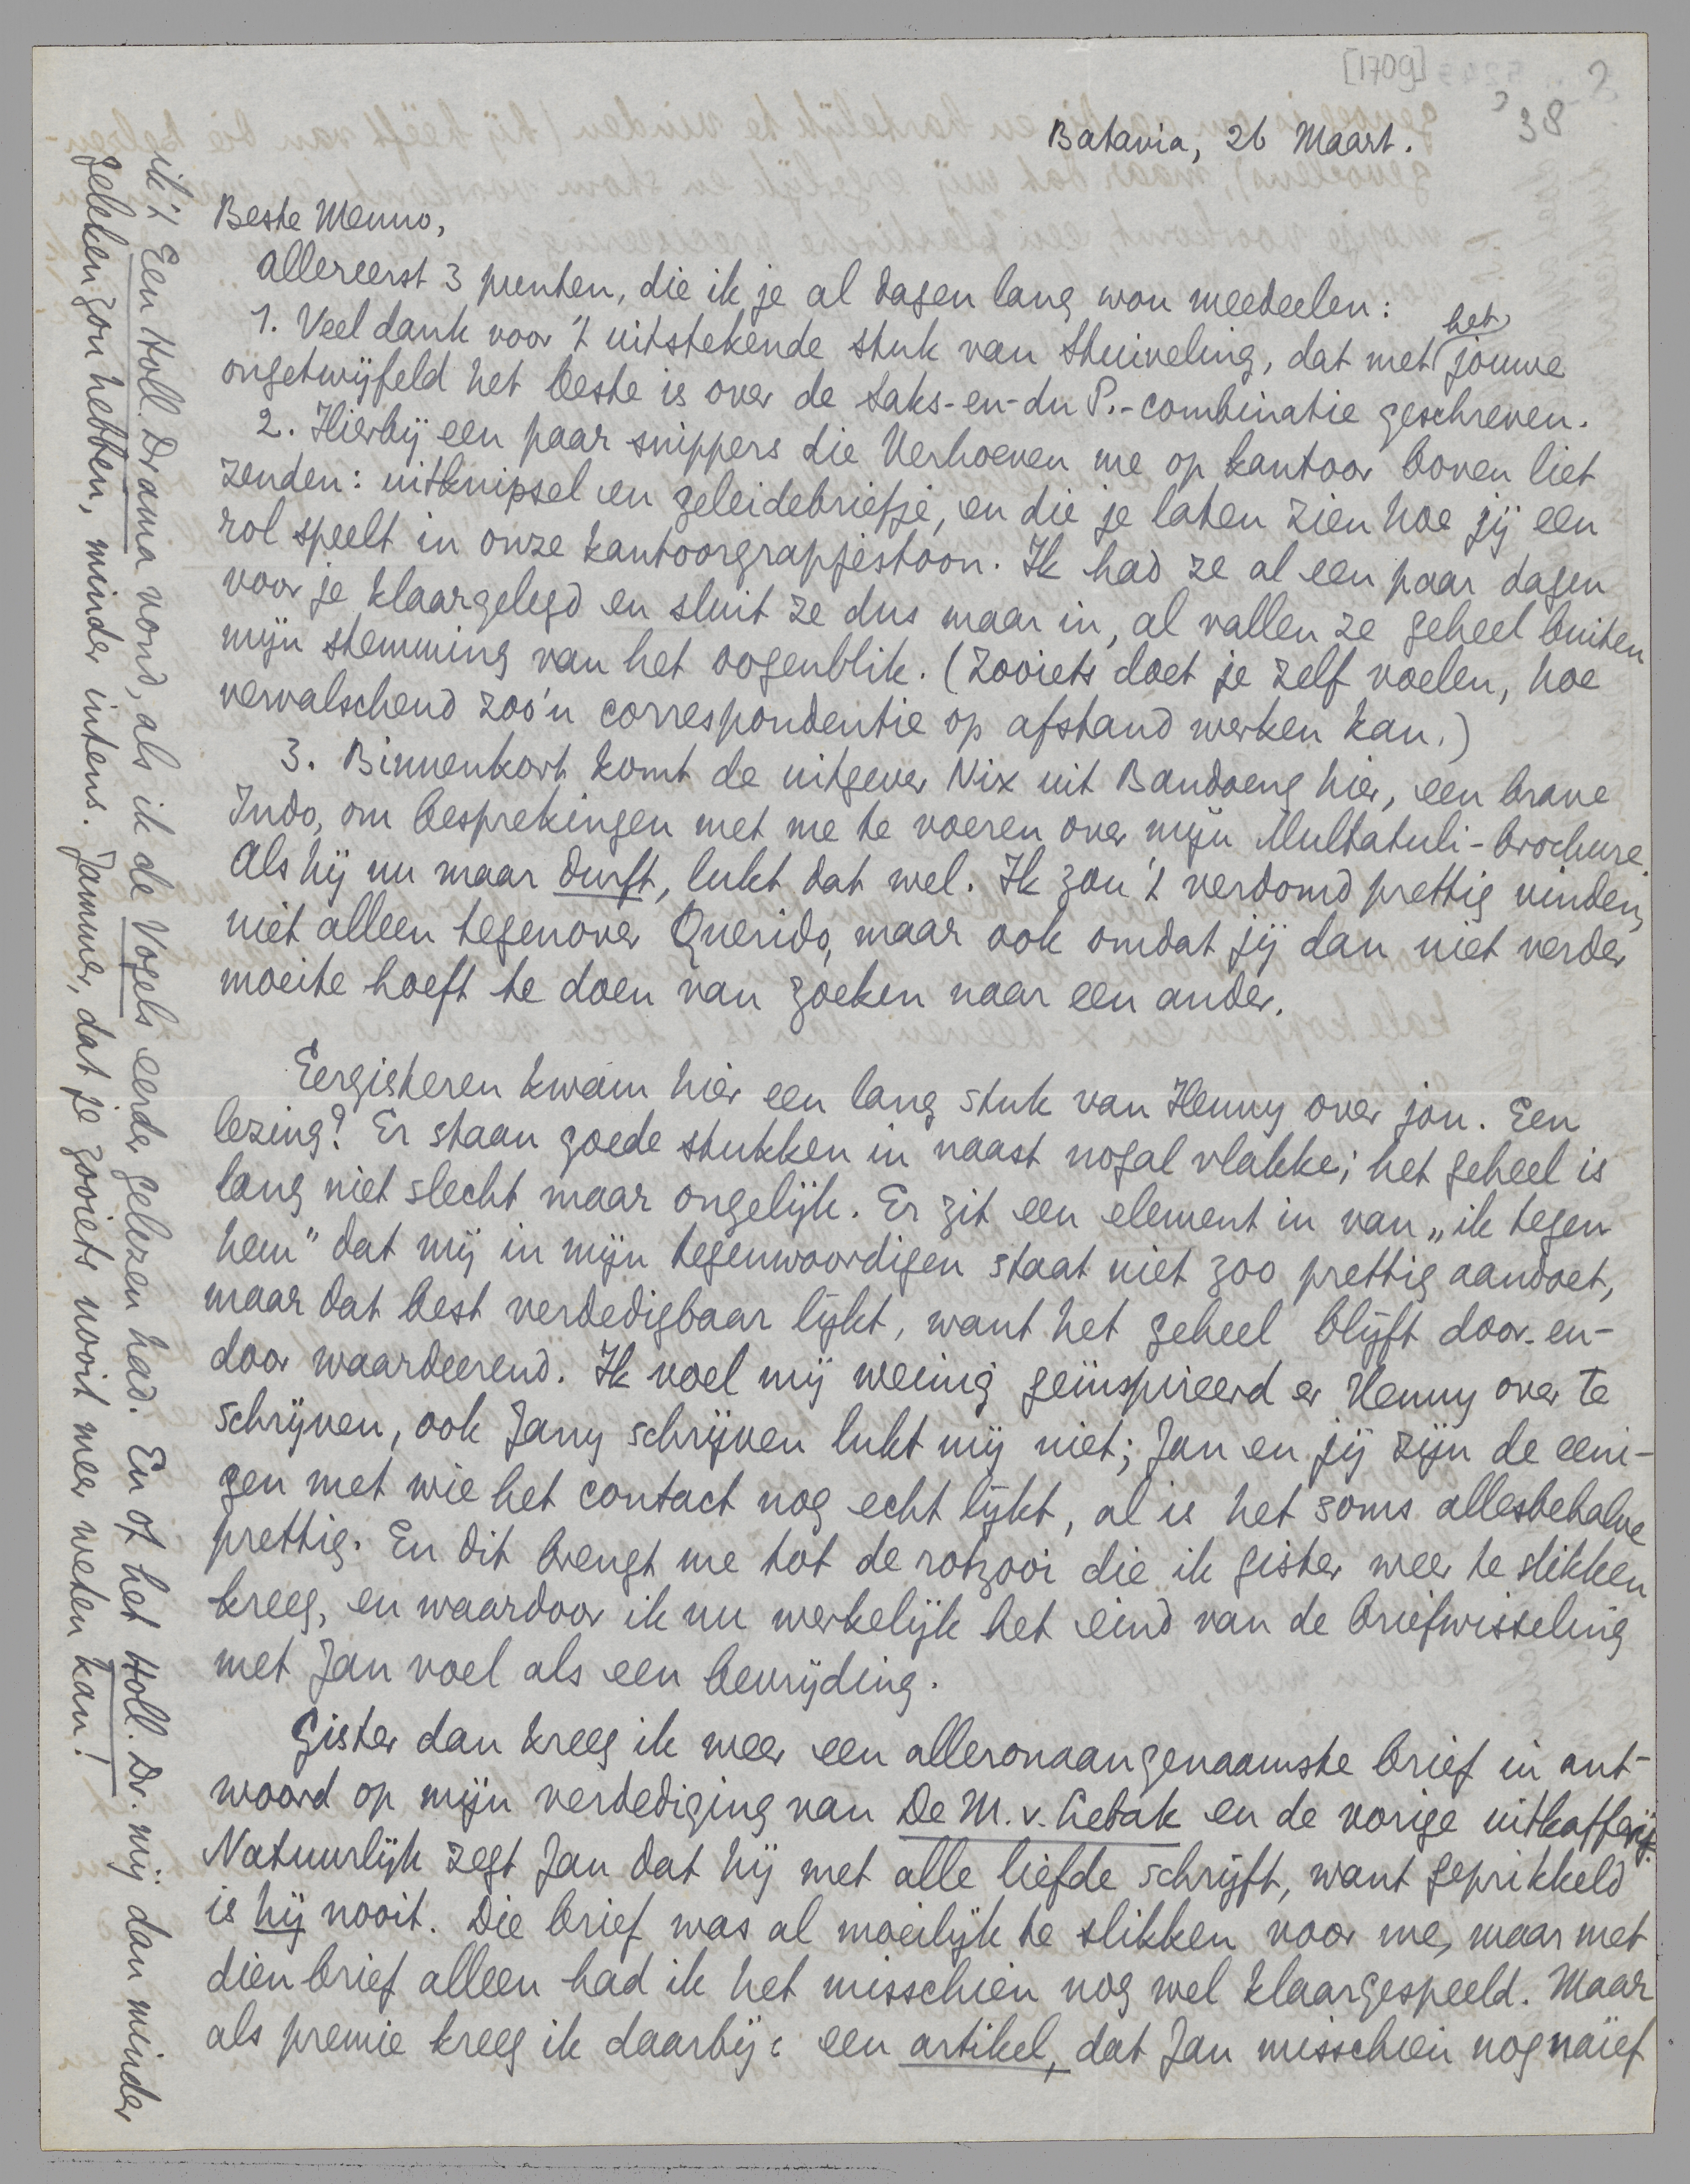 [1709]
38
Batavia, 26 Maart.
Beste Menno,
Allereerst 3 punten, die ik je al dagen lang wou meedeelen:
1. Veel dank voor 't uitstekende stuk van Stuiveling, dat met het jouwe
ongetwijfeld het beste is over de Saks-en-du P.-combinatie geschreven.
2. Hierbij een paar snippers die Verhoeven me op kantoor boven liet
zenden: uitknipsel en geleidebriefje, en die je laten zien hoe jij een
rol speelt in onze kantoorgrapjestoon. Ik had ze al een paar dagen
voor je klaargelegd en sluit ze dus maar in, al vallen ze geheel buiten
mijn stemming van het oogenblik. (Zooiets doet je zelf voelen, hoe
vervalschend zoo'n correspondentie op afstand werken kan.)
3. Binnenkort komt de uitgever Nix uit Bandoeng hier, een brave
Indo, om besprekingen met me te voeren over mijn Multatuli-brochure.
Als hij nu maar durft, lukt dat wel. Ik zou 't verdomd prettig vinden,
niet alleen tegenover Querido, maar ook omdat jij dan niet verder
moeite hoeft te doen van zoeken naar een ander.
Eergisteren kwam hier een lang stuk van Henny over jou. Een
lezing? Er staan goede stukken in naast nogal vlakke; het geheel is
lang niet slecht maar ongelijk. Er zit een element in van „ik tegen
hem" dat mij in mijn tegenwoordigen staat niet zoo prettig aandoet,
maar dat best verdedigbaar lijkt, want het geheel blijft door-en-
door waardeerend. Ik voel mij weinig geïnspireerd er Henny over te
schrijven, ook Jany schrijven lukt mij niet; Jan en jij zijn de eeni-
gen met wie het contact nog echt lijkt, al is het soms allesbehalve
prettig. En dit brengt me tot de rotzooi die ik gister weer te slikken
kreeg, en waardoor ik nu werkelijk het eind van de briefwisseling
met Jan voel als een bevrijding.
Gister dan kreeg ik weer een alleronaangenaamste brief in ant-
woord op mijn verdediging van De M. v. Lebak en de vorige uitkafferij.
Natuurlijk zegt Jan dat hij met alle liefde schrijft, want geprikkeld
is hij nooit. Die brief was al moeilijk te slikken voor me, maar met
dien brief alleen had ik het misschien nog wel klaargespeeld. Maar
als premie kreeg ik daarbij: een artikel, dat Jan misschien nog naïef
ik 't Een Holl. Drama vond, als ik de Vogels eerder gelezen had. En of het Holl. Dr. mij dan minder
gekeken zou hebben, minder intens. Jammer, dat je zooiets nooit meer weten kan!